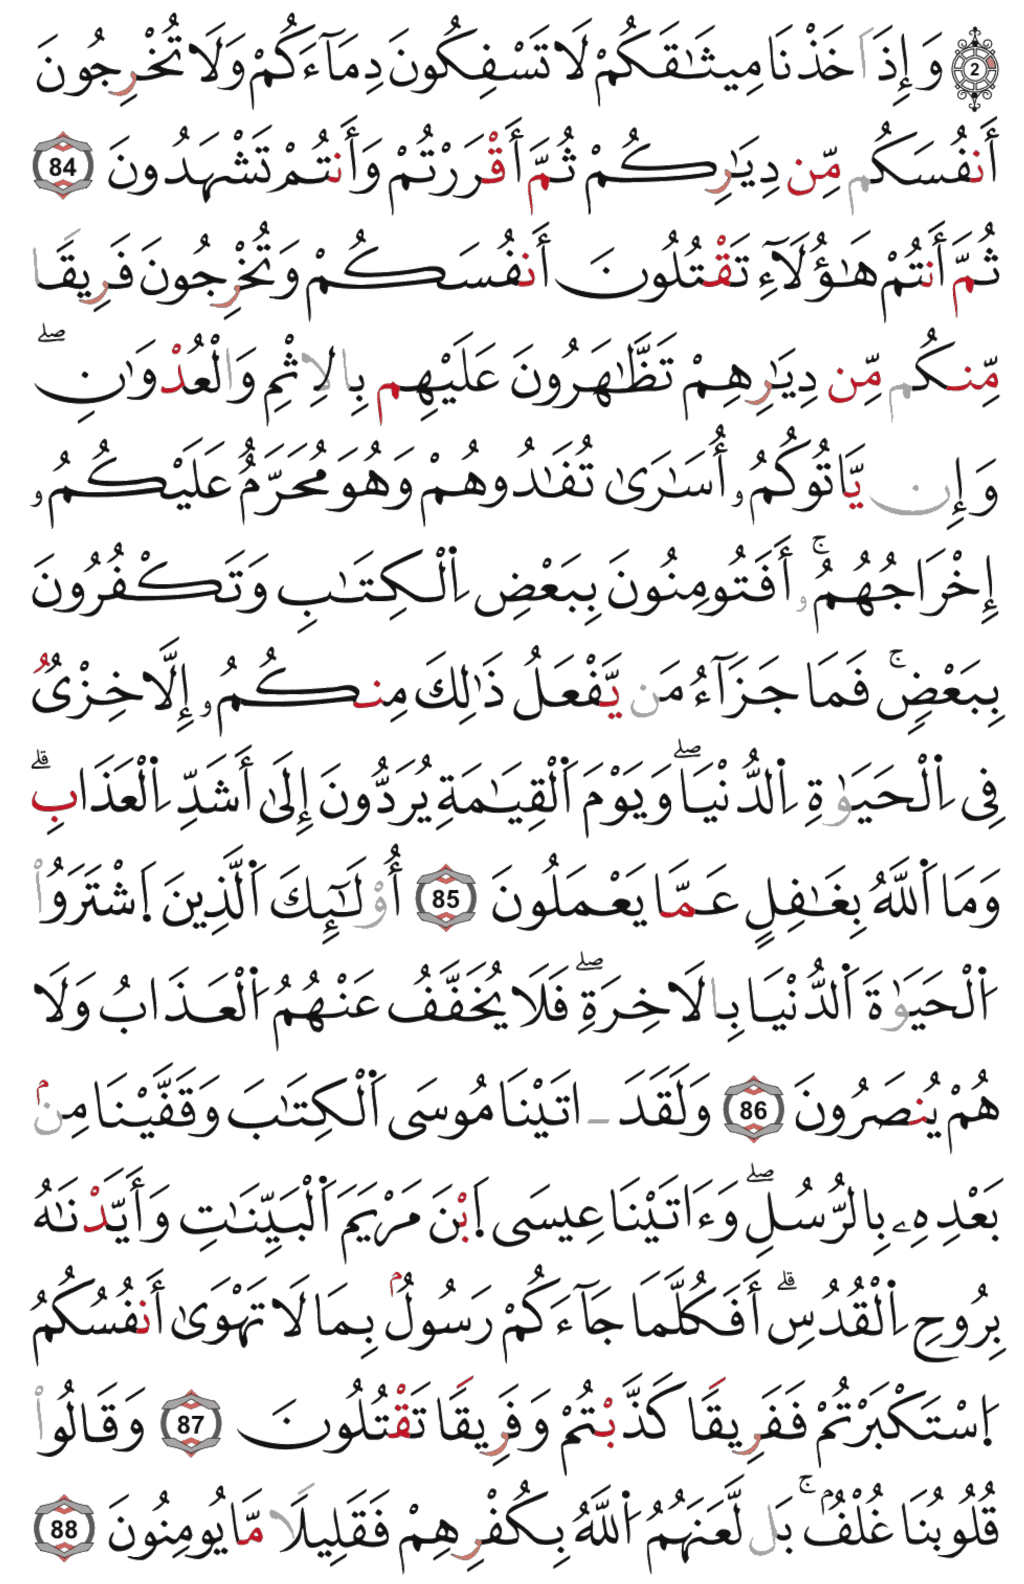 2 وَإِذَ اَخَذْنَا مِيثَٰقَكُمْ لَا تَسْفِكُونَ دِمَآءَكُمْ وَلَا تُخْرِجُونَ
أَنفُسَكُم مِّن دِيَٰرِكُمْ ثُمَّ أَقْرَرْتُمْ وَأَنتُمْ تَشْهَدُونَ 84
ثُمَّ أَنتُمْ هَٰؤُلَآءِ تَقْتُلُونَ أَنفُسَكُمْ وَتُخْرِجُونَ فَرِيقًا
مِّنكُم مِّن دِيَٰرِهِمْ تَظَّٰهَرُونَ عَلَيْهِم بِالِاثْمِ وَالْعُدْوَٰنِ ۖ
وَإِن يَّاتُوكُمُۥ أُسَٰرَىٰ تُفَٰدُوهُمْ وَهُوَ مُحَرَّمٌ عَلَيْكُمُۥ
إِخْرَاجُهُمُۥ ۚ أَفَتُومِنُونَ بِبَعْضِ اِ۬لْكِتَٰبِ وَتَكْفُرُونَ
بِبَعْضٍ ۚ فَمَا جَزَآءُ مَن يَّفْعَلُ ذَٰلِكَ مِنكُمُۥ إِلَّا خِزْىٌ
فِى اِ۬لْحَيَوٰةِ اِ۬لدُّنْيَا ۖ وَيَوْمَ اَ۬لْقِيَٰمَةِ يُرَدُّونَ إِلَىٰ أَشَدِّ اِ۬لْعَذَابِ ۗ
وَمَا اَ۬للَّهُ بِغَٰفِلٍ عَمَّا يَعْمَلُونَ 85 أُوْلَٰٓئِكَ اَ۬لَّذِينَ اَ۪شْتَرَوُاْ
اُ۬لْحَيَوٰةَ اَ۬لدُّنْيَا بِالَاخِرَةِ ۖ فَلَا يُخَفَّفُ عَنْهُمُ اُ۬لْعَذَابُ وَلَا
هُمْ يُنصَرُونَ 86 وَلَقَدَ ـ اتَيْنَا مُوسَى اَ۬لْكِتَٰبَ وَقَفَّيْنَا مِنۢ
بَعْدِهِۦ بِالرُّسُلِ ۖ وَءَاتَيْنَا عِيسَى اَ۪بْنَ مَرْيَمَ اَ۬لْبَيِّنَٰتِ وَأَيَّدْنَٰهُ
بِرُوحِ اِ۬لْقُدُسِ ۗ أَفَكُلَّمَا جَآءَكُمْ رَسُولُۢ بِمَا لَا تَهْوَىٰ أَنفُسُكُمُ
اُ۪سْتَكْبَرْتُمْ فَفَرِيقًا كَذَّبْتُمْ وَفَرِيقًا تَقْتُلُونَ 87 وَقَالُواْ
قُلُوبُنَا غُلْفُۢ ۚ بَل لَّعَنَهُمُ اُ۬للَّهُ بِكُفْرِهِمْ فَقَلِيلًا مَّا يُومِنُونَ 88